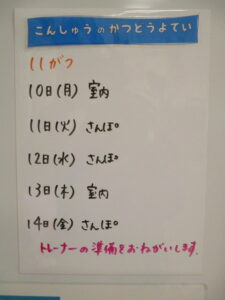 こんしゅうのかつどうよてい
11がつ
10日(月) 室内
11日(火) さんぽ。
12日(水) さんぽ。
13日(木) 室内
14日(金) さんぽ。
トレーナーの準備をおねがいします。